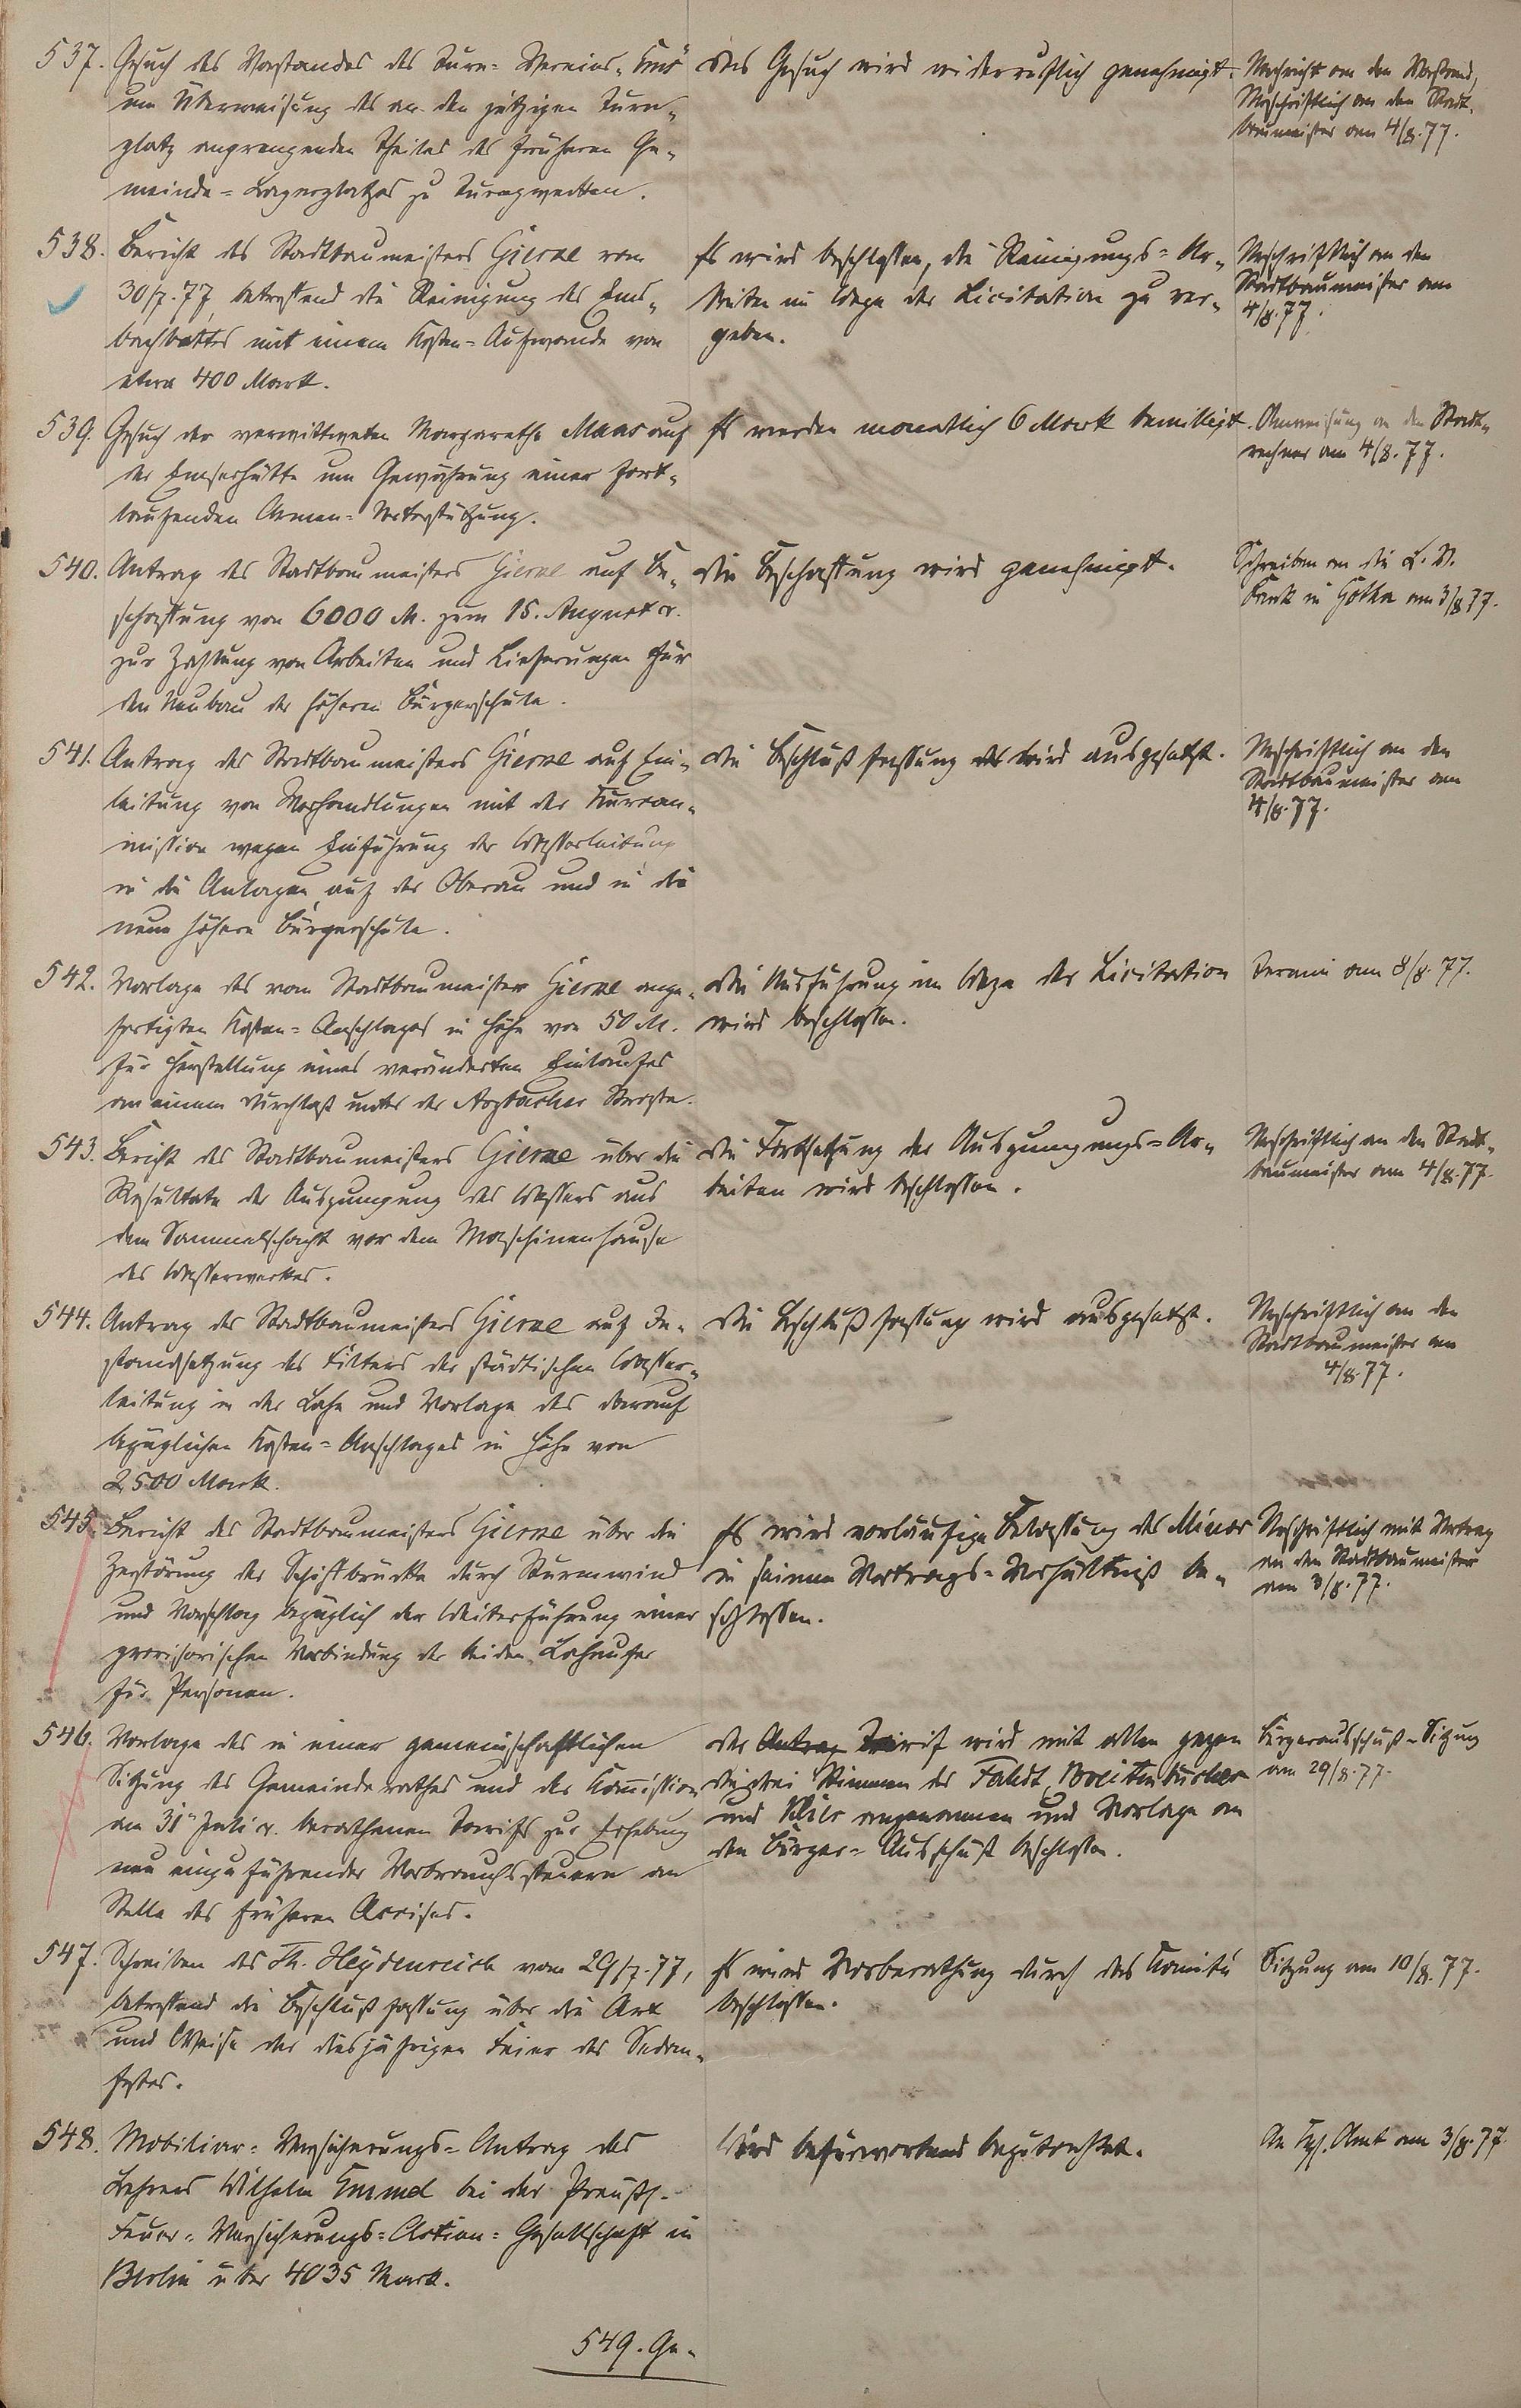 537. Gesuch des Vorstandes des Turn-Vereins „Ems"
um Überweisung des an den jetzigen Turn-
platz angrenzenden Theiles des früheren Ge-
meinde-Lagerplatzes zu Turnzwecken.
Das Gesuch wird widerruflich genehmigt.
Nachricht an den Vorstand,
Urschriftlich an den Stadt-
baumeister am 4/8.77.
538. Bericht des Stadtbaumeisters Gierne vom
30/7.77, betreffend die Reinigung des Ems-
bachbettes mit einem Kosten-Aufwande von
etwa 400 Mark.
Es wird beschlossen, die Reinigungs-Ar-
beiten im Wege der Licitation zu ver-
geben.
Urschriftlich an den
Stadtbaumeister am
4/8.77.
539. Gesuch der verwittweten Margarethe Maas auf
der Emserhütte um Gewährung einer fort-
laufenden Armen-Unterstützung.
Es werden monatlich 6 Mark bewilligt.
Anweisung an den Stadt-
rechner am 4/8.77.
540. Antrag des Stadtbaumeisters Gierne auf Be-
schaffung von 6000 M. zum 15. August cr.
zur Zahlung von Arbeiten und Lieferungen für
den Neubau der höheren Bürgerschule.
Die Beschaffung wird genehmigt.
Schreiben an die
Bank in Gotha am 3/8.77.
541. Antrag des Stadtbaumeisters Gierne auf Ein-
leitung von Verhandlungen mit der Kurcom-
mission wegen Einführung der Wasserleitung
in die Anlagen auf der Oberau und in die
neue höhere Bürgerschule.
Die Beschlußfassung wird ausgesetzt.
Urschriftlich an den
Stadtbaumeister am
4/8.77.
542. Vorlage des vom Stadtbaumeister Gierne ange-
fertigten Kosten-Anschlages in Höhe von 50 M.
für Herstellung eines veränderten Einlaufes
an einem Durchlaß unter der Arzbacher Straße.
Die Ausführung im Wege der Licitation
wird beschlossen.
Termin am 8/8.77.
543. Bericht des Stadtbaumeisters Gierne über die
Resultate der Auspumpung des Wassers aus
dem Sammelschacht vor dem Maschinenhause
des Wasserwerkes.
Die Fortsetzung der Auspumpungs-Ar-
beiten wird beschlossen.
Urschriftlich an den Stadt-
baumeister am 4/8.77.
544. Antrag des Stadtbaumeisters Gierne auf In-
standsetzung des Filters der städtischen Wasser-
leitung in der Lahn und Vorlage des darauf
bezüglichen Kosten-Anschlages in Höhe von
2500 Mark.
Die Beschlußfassung wird ausgesetzt.
Urschriftlich an den
Stadtbaumeister am
4/8.77.
545. Bericht des Stadtbaumeisters Gierne über die
Zerstörung der Schiffbrücke durch Sturmwind
und Vorschlag bezüglich der Weiterführung einer
provisorischen Verbindung der beiden Lahnufer
für Personen.
Es wird vorläufige Belassung des Minor
in seinem Vertrags-Verhältniß be-
schlossen.
Urschriftlich mit Vertrag
an den Stadtbaumeister
am 3/8.77.
546. Vorlage des in einer gemeinschaftlichen
Sitzung des Gemeinderathes und der Kommission
am 31ten Juli cr. berathenen Tarifs zur Erhebung
neu einzuführender Verbrauchssteuern an
Stelle des früheren Accises.
Der Antrag Tarif wird mit allen gegen
die drei Stimmen der Faldt, Breitenbücher
und angenommen und Vorlage an
den Bürger-Ausschuß beschlossen.
Bürgerausschuß-Sitzung
am 29/8.77.
547. Schreiben des Th. Heydenreich vom 29/7.77,
betreffend die Beschlußfassung über die Art
und Weise der diesjährigen Feier des Sedan-
festes.
Es wird Vorberathung durch das Komité
beschlossen.
Sitzung am 10/8.77.
548. Mobiliar-Versicherungs-Antrag des
Lehrers Wilhelm Emmel bei der Preuß.
Feuer-Versicherungs-Actien-Gesellschaft in
Berlin über 4035 Mark.
Wird befürwortend begutachtet.
An Kgl. Amt am 3/8.77.
549. Ge-